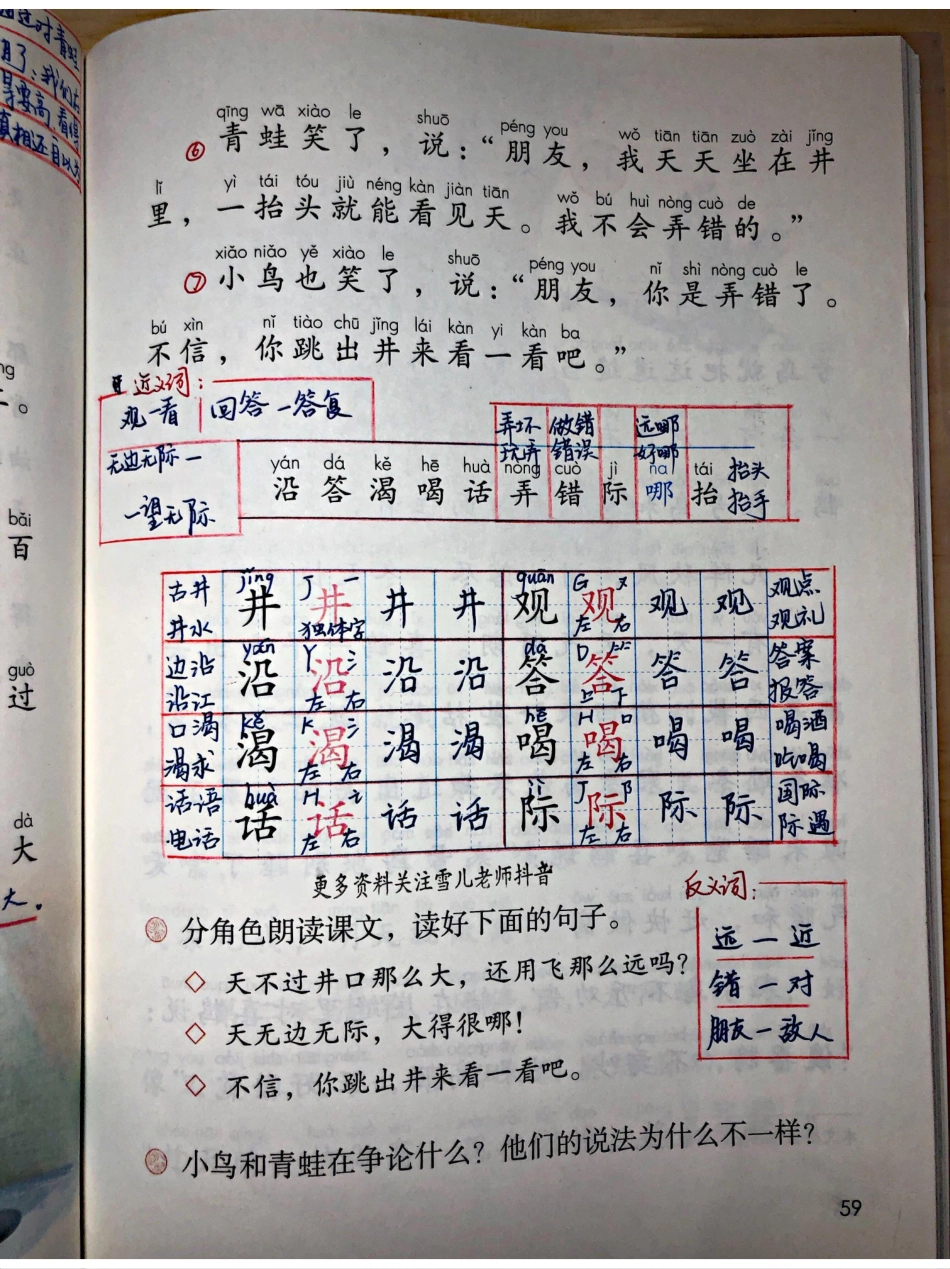 面对青蛙
我们
要高,看得
真相还目以为
qīng wā xiào le shuō péng you wǒ tiān tiān zuò zài jǐng
⑥ 青蛙笑了,说:“朋友,我天天坐在井
lǐ yì tái tóu jiù néng kàn jiàn tiān wǒ bú huì nòng cuò de
里,一抬头就能看见天。我不会弄错的。”
xiǎo niǎo yě xiào le shuō péng you nǐ shì nòng cuò le
⑦ 小鸟也笑了,说:“朋友,你是弄错了。
bú xìn nǐ tiào chū jǐng lái kàn yi kàn ba
不信,你跳出井来看一看吧。”
近义词:
观一看 回答一答复
无边无际一
一望无际
弄坏 做错 远哪
玩弄 错误 好哪
yán dá kě hē huà nòng cuò jì na tái 抬头
沿 答 渴 喝 话 弄 错 际 哪 抬 抬手
bǎi
百
guò
过
dà
大
大。
古井 jǐng J 一 guān G 又 观点
井水 井 井 井 井 观 观 观 观 观礼
独体字 左 右
边沿 yán Y 氵 dá D 竹 答案
沿江 沿 沿 沿 沿 答 答 答 答 报答
左 右 上 下
口渴 kě K 氵 hē H 口 喝酒
渴求 渴 渴 渴 渴 喝 喝 喝 喝 吃喝
左 右 左 右
话语 huà H 讠 jì J 阝 国际
电话 话 话 话 话 际 际 际 际 际遇
左 右 左 右
更多资料关注雪儿老师抖音
分角色朗读课文,读好下面的句子。
◇ 天不过井口那么大,还用飞那么远吗?
◇ 天无边无际,大得很哪!
◇ 不信,你跳出井来看一看吧。
反义词:
远一近
错一对
朋友一敌人
小鸟和青蛙在争论什么?他们的说法为什么不一样?
59